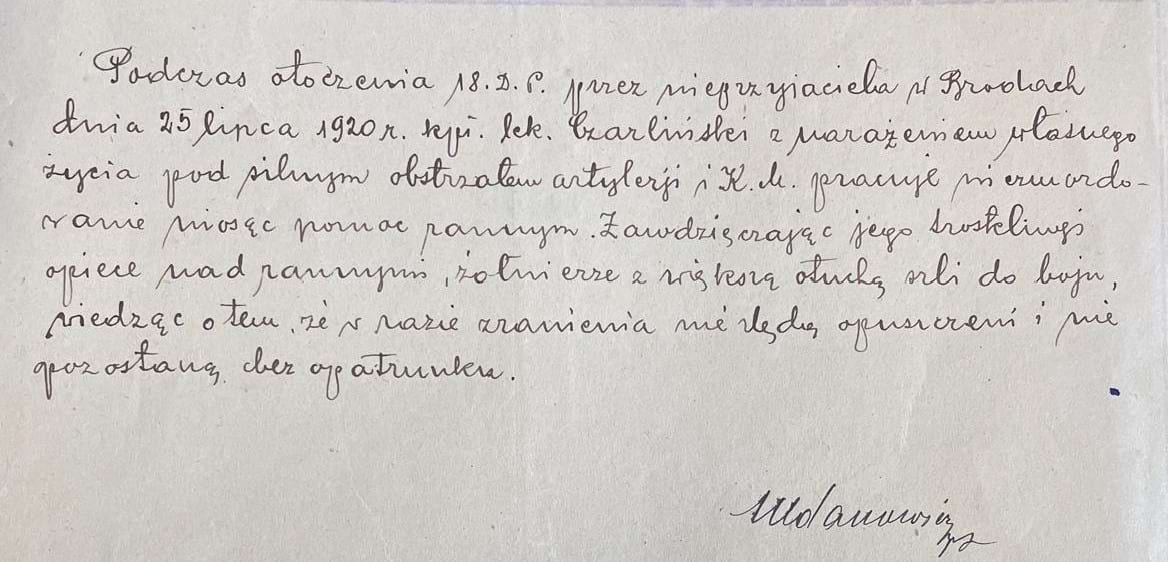 Podczas otoczenia 18. D. P. przez nieprzyjaciela w Brodach
dnia 25 lipca 1920 r. kpt. lek. Czarliński z narażeniem własnego
życia pod silnym obstrzałem artylerji i K. M. pracuje niezmordo-
wanie niosąc pomoc rannym. Zawdzięczając jego troskliwej
opiece nad rannymi, żołnierze z większą otuchą szli do boju,
wiedząc o tem, że w razie zranienia nie będą opuszczeni i nie
pozostaną bez opatrunku.